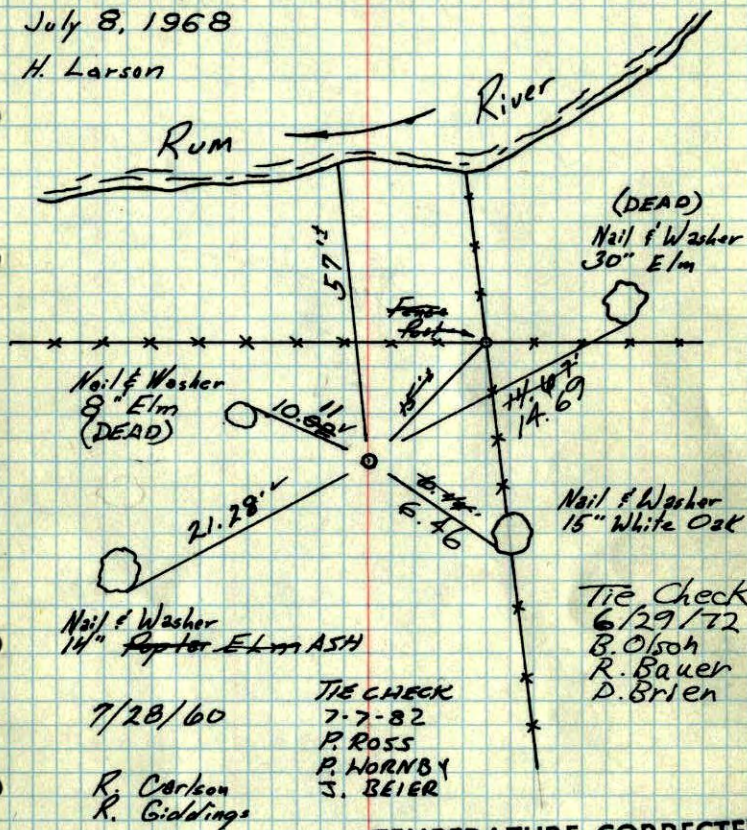 July 8, 1968
H. Larson
Rum River
57'±
(DEAD)
Nail & Washer
30" Elm
Fence
Post
Nail & Washer
8" Elm
(DEAD)
10.88 11
14.69
21.28'
6.46
Nail & Washer
15" White Oak
Nail & Washer
14" Poplar Elm ASH
Tie Check
6/29/72
B. Olson
R. Bauer
D. Brien
7/28/60
R. Carlson
R. Giddings
TIE CHECK
7-7-82
P. ROSS
P. HORNBY
J. BEIER
TEMPERATURE CORRECTED